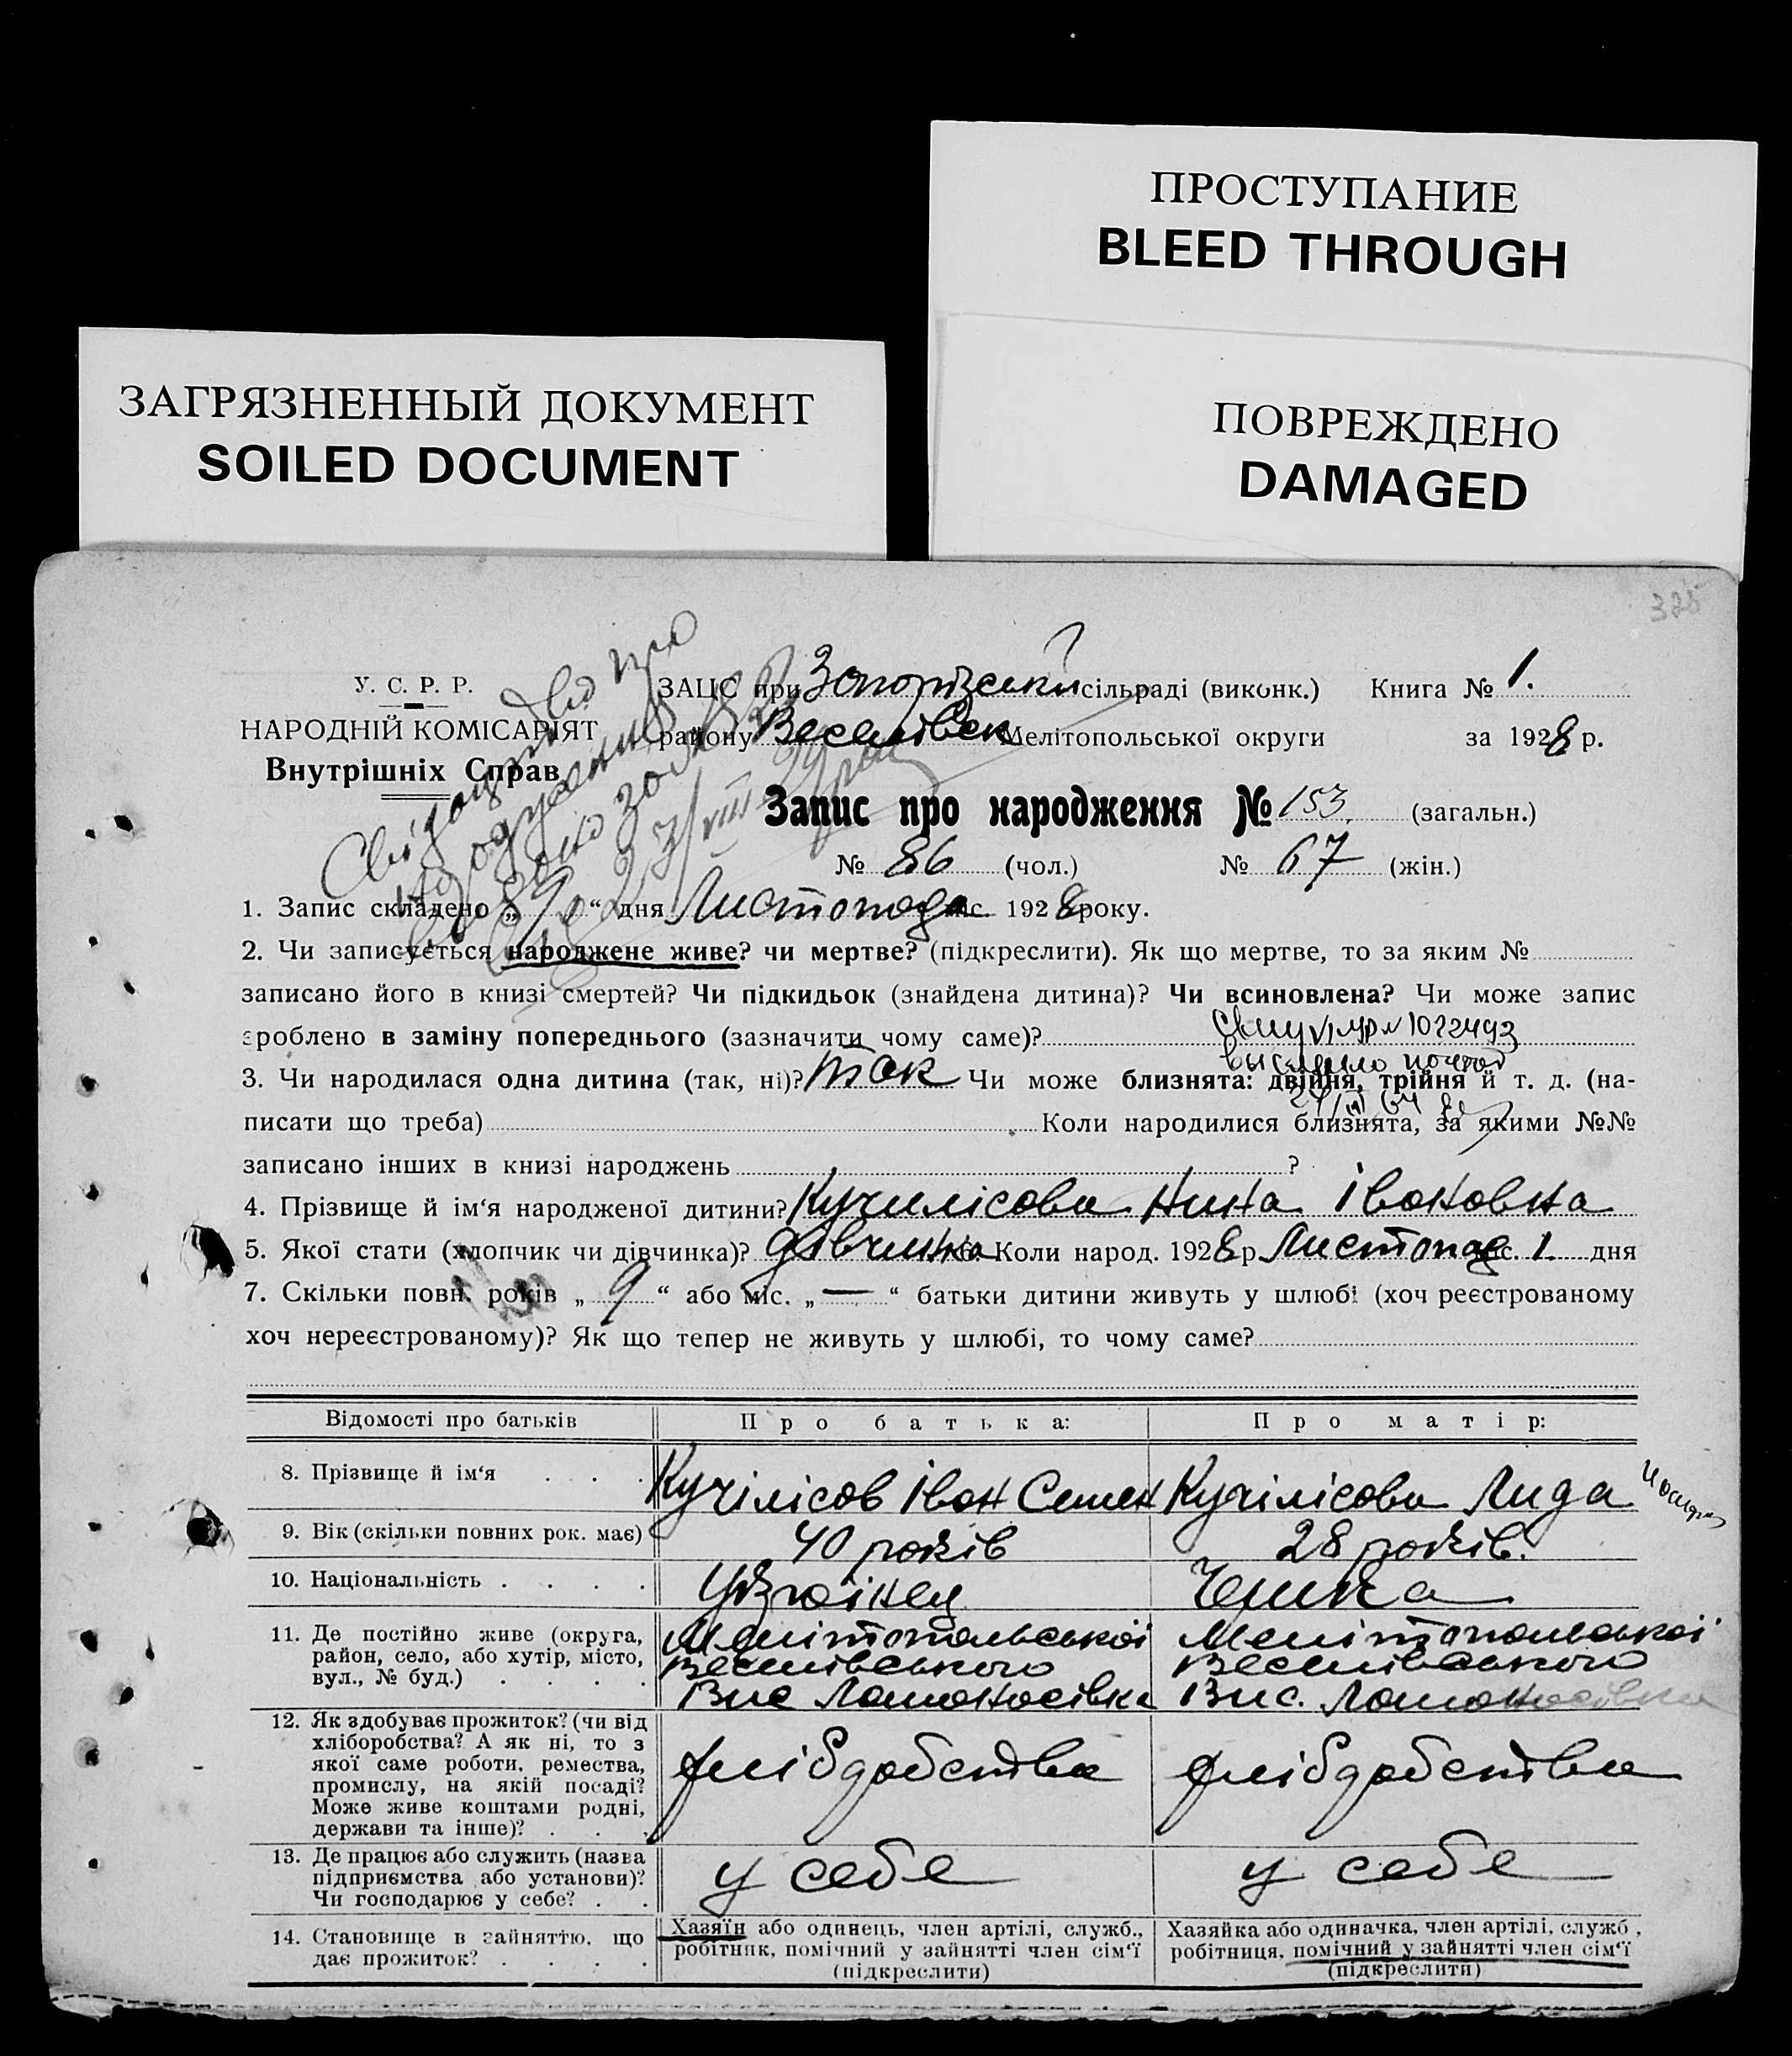 ПРОСТУПАНИЕ
BLEED THROUGH
ЗАГРЯЗНЕННЫЙ ДОКУМЕНТ
SOILED DOCUMENT
ПОВРЕЖДЕНО
DAMAGED
328
У. С. Р. Р.
НАРОДНІЙ КОМІСАРІЯТ
Внутрішніх Справ
ЗАЦС при Запорізській сільраді (виконк.) Книга № 1.
району Веселівськ Мелітопольської округи за 1928 р.
Запис про народження № 153 (загальн.)
№ 86 (чол.) № 67 (жін.)
1. Запис складено „ 9 “ дня Листопада міс. 1928 року.
2. Чи записується народжене живе? чи мертве? (підкреслити). Як що мертве, то за яким №
записано його в книзі смертей? Чи підкидьок (знайдена дитина)? Чи всиновлена? Чи може запис
зроблено в заміну попереднього (зазначити чому саме)?
№ 1022493
3. Чи народилася одна дитина (так, ні)? так Чи може близнята: двійня, трійня й т. д. (на-
писати що треба) Коли народилися близнята, за якими №№
записано інших в книзі народжень ?
4. Прізвище й ім‘я народженої дитини? Кучилісова Нина Івановна
5. Якої стати (хлопчик чи дівчинка)? дівчинка 6. Коли народ. 1928 р. Листопад міс. 1. дня
7. Скільки повн. років „ 9 “ або міс. „ — “ батьки дитини живуть у шлюбі (хоч реєстрованому
хоч нереєстрованому)? Як що тепер не живуть у шлюбі, то чому саме?
Відомості про батьків
Про батька:
Про матір:
8. Прізвище й ім‘я
Кучілісов Іван Семен
Кучілісова Лида
9. Вік (скільки повних рок. має)
40 років
28 років.
10. Національність
Українец
Чешка
11. Де постійно живе (округа,
район, село, або хутір, місто,
вул., № буд.)
Мелітопольської
Веселівського
Вис Ломоносівка
Мелітопольської
Веселівського
Вис. Ломоносівка
12. Як здобуває прожиток? (чи від
хліборобства? А як ні, то з
якої саме роботи, ремества,
промислу, на якій посаді?
Може живе коштами родні,
держави та інше)?
13. Де працює або служить (назва
підприємства або установи)?
Чи господарює у себе?
у себе
у себе
14. Становище в зайняттю, що
дає прожиток?
Хазяїн або одинець, член артілі, служб.,
робітник, помічний у зайнятті член сім‘ї
(підкреслити)
Хазяйка або одиначка, член артілі, служб,
робітниця, помічний у зайнятті член сім‘ї
(підкреслити)